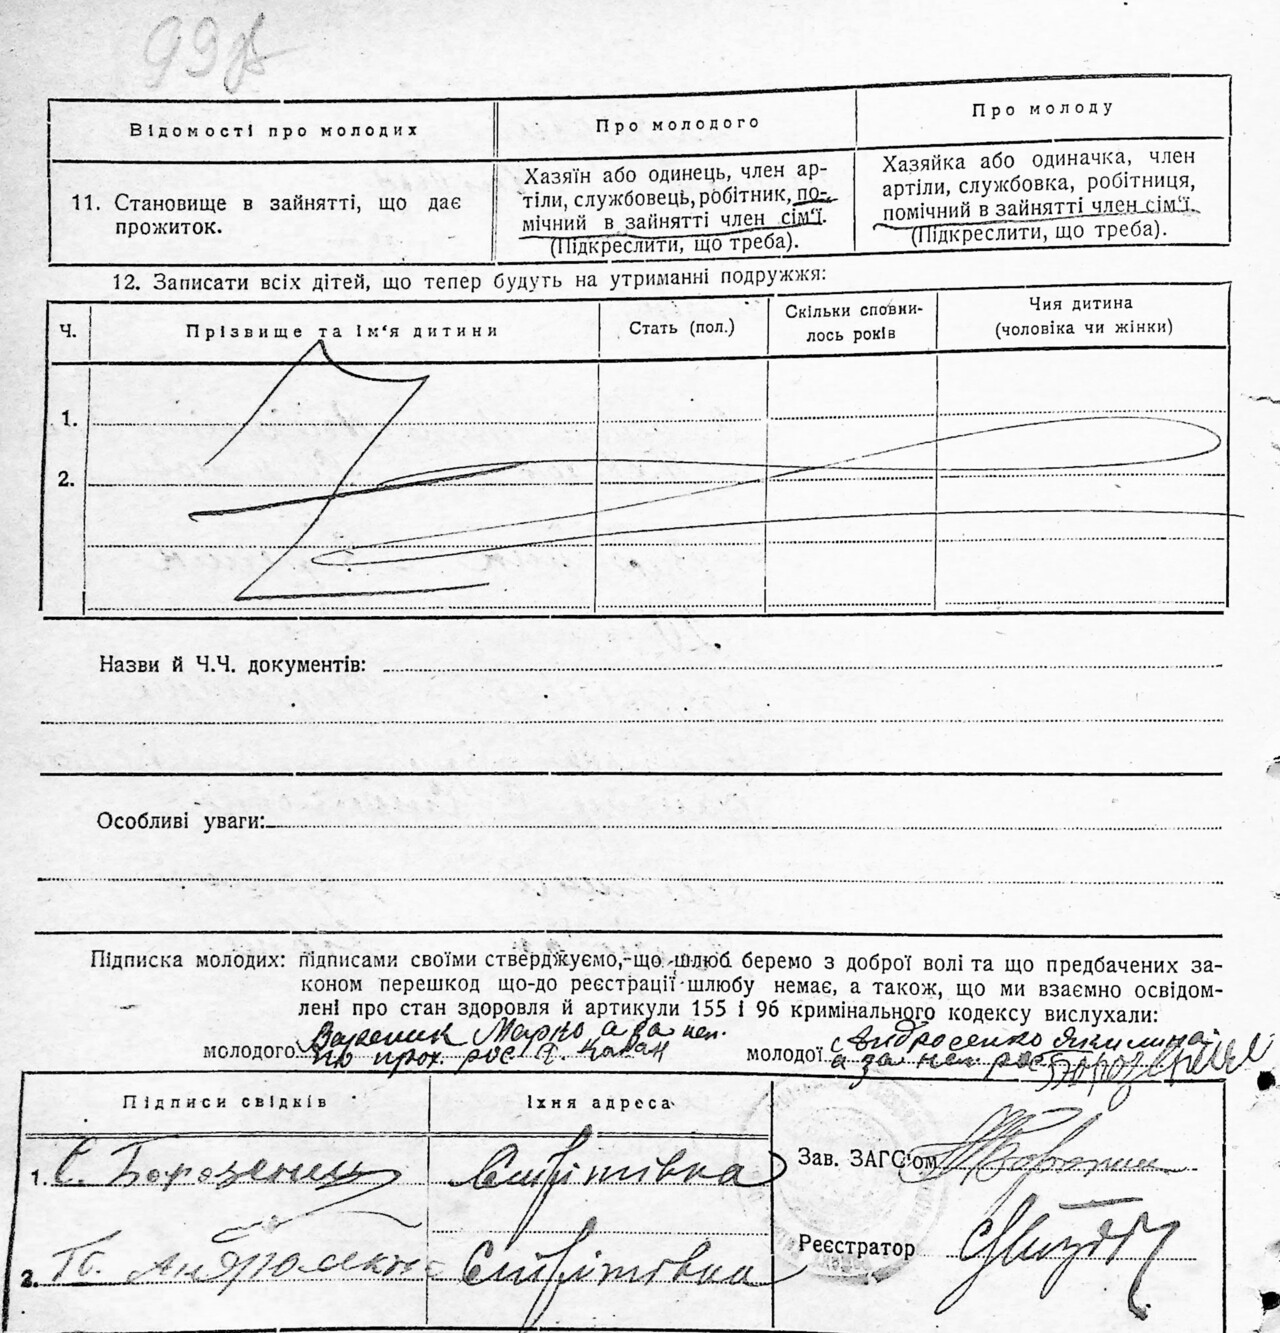 Відомості про молодих
Про молодого
Про молоду
11. Становище в зайнятті, що дає
прожиток.
Хазяїн або одинець, член ар-
тіли, службовець, робітник, по-
мічний в зайнятті член сім'ї.
(Підкреслити, що треба).
Хазяйка або одиначка, член
артіли, службовка, робітниця,
помічний в зайнятті член сім'ї.
(Підкреслити, що треба).
12. Записати всіх дітей, що тепер будуть на утриманні подружжя:
Ч.
Прізвище та ім'я дитини
Стать (пол.)
Скільки сповни-
лось років
Чия дитина
(чоловіка чи жінки)
1.
2.
Назви й Ч.Ч. документів:
Особливі уваги:
Підписка молодих: підписами своїми стверджуємо, що шлюб беремо з доброї волі та що предбачених за-
коном перешкод що-до реєстрації шлюбу немає, а також, що ми взаємно освідом-
лені про стан здоровля й артикули 155 і 96 кримінального кодексу вислухали:
Вареник Марко а за неп.
молодого по прох. рос
Андросенко Якилина
молодої а за неп рос
Підписи свідків
Їхня адреса
1. С. Борозенець
2. Андросенко
Зав. ЗАГС'ом
Реєстратор